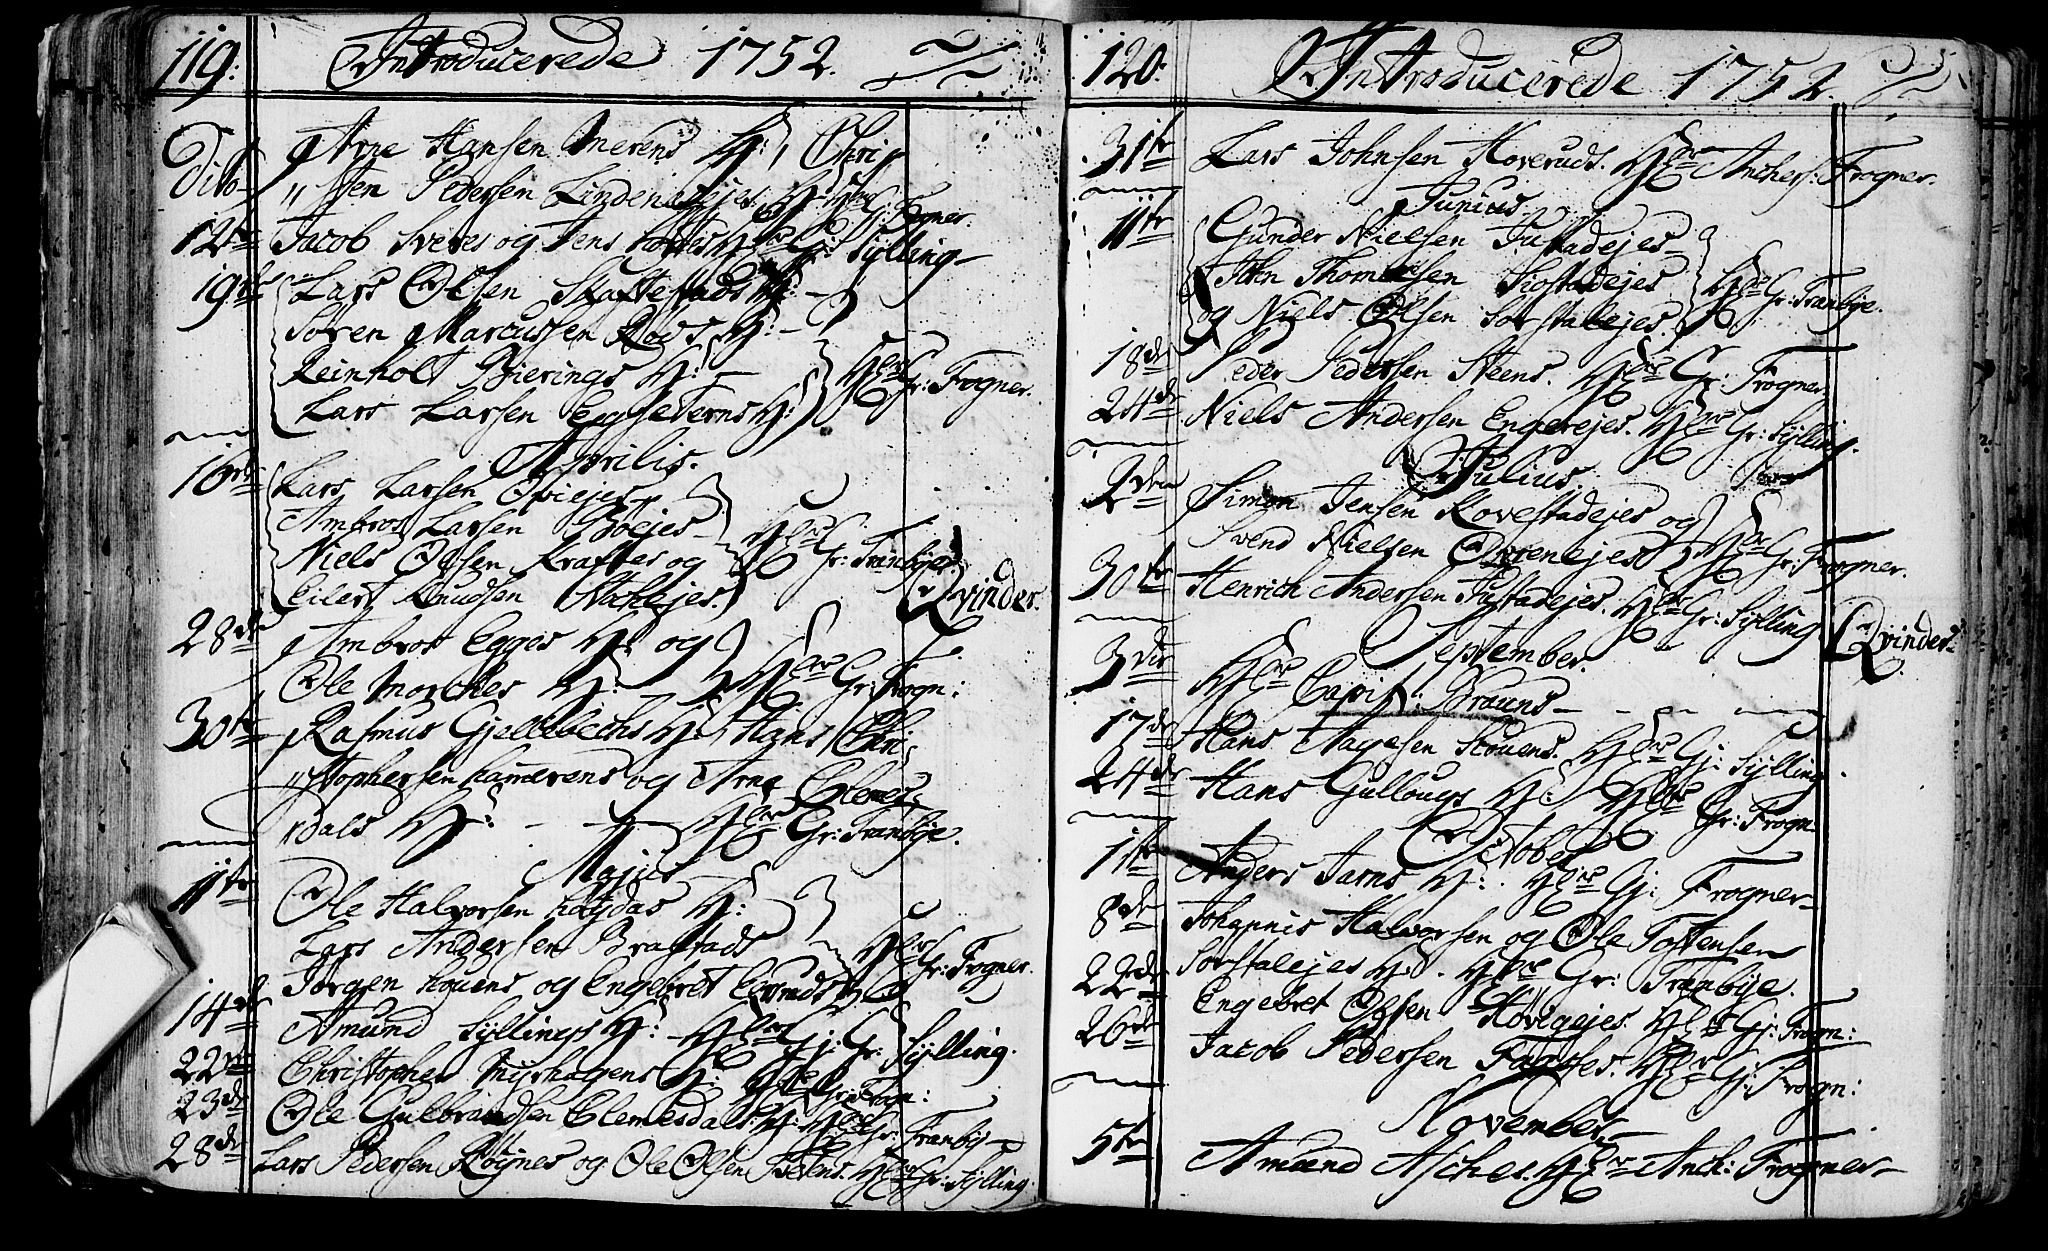 119. Introducerede 1752.
Dito Arne Hansen Merens H: Chri
sten Pedersen Lindenesejes H: Gr: Frogner.
12te Jacob Sveres og Jens H: Gr: Sylling
19de Lars Olsen Skaftestads H:
Søren Marcussen Röds H:
Reinholt Bierings H:
Lars Larsen Eggetierns H: Gr: Frogner.
Aprilis.
16de Lars Larsen Oviejes
Ambros Larsen Bøejes
Niels Olsen Kraftes og
Eilert Knudsen Stokejes. Gr: Tranbye
Qvinder.
28de Ambros Egges H: og
Ole Morches H: Gr: Frogn:
30te Rasmus Gjellebechs H: Hans Chri
stophersen Hamerens og Arne Clemes
dals H: Gr: Tranbye.
Majus
11te Ole Halvorsen H:
Lars Andersen Brastads
Jørgen Houens og Engebret H: Gr: Frogner.
14de Amund Syllings H: Gr: Sylling.
22de Christopher Myrhagens H: Gr: Frogn:
23de Ole Gulbrandsen Clemesdals H: Gr: Tranby
28de Lars Pedersen Röynes og Ole Olsen H: Gr: Sylling
120. Introducerede 1752.
31te Lars Johnsen Hoveruds. H: Ancher: Frogner.
Junius
11te Gunder Nielsen Justadejes
John Thomesen Siostadejes
og Niels Olsen Sørstalejes. Gr: Tranbye.
18de Peder Pedersen Steens. Gr: Frogner
24de Niels Andersen Engerejes. Gr: Sylling.
Julius
2den Simon Jensen Hovestadejes og
Svend Nielsen Ovrenejes Gr: Frogner.
30te Henrich Andersen Justadejes. Gr: Sylling
Qvinder
September.
3die Capit: Brouns
17de Hans Aagesen Houens. Gj: Sylling.
24de Hans Gullougs H: Gr: Frogn
October
1te Anders Jarns H: Gj: Frogner
8de Johannis Halvorsen og Ole Tostensen
Sørstalejes H: Gr: Tranbye.
22de Engebret Olsen Hovegejes. Gj: Frogn:
26de Jacob Pedersen Gj: Frogn:
November
5te Amund Asches. Anch: Frogner